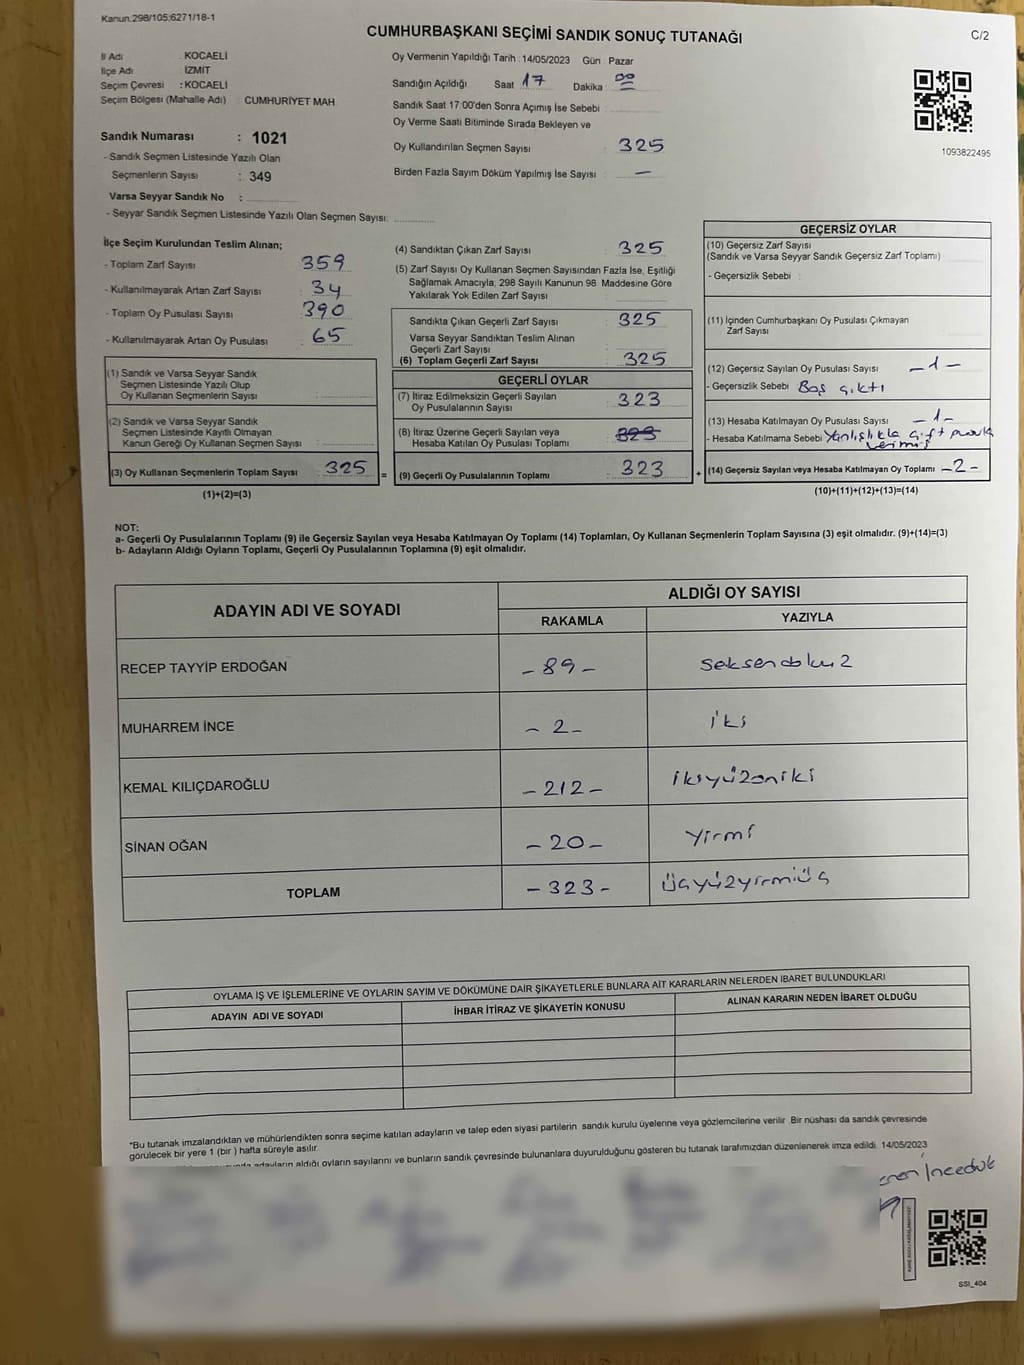 Kanun.298/105;6271/18-1
CUMHURBAŞKANI SEÇİMİ SANDIK SONUÇ TUTANAĞI
C/2
İl Adı : KOCAELİ
İlçe Adı : İZMİT
Seçim Çevresi : KOCAELİ
Seçim Bölgesi (Mahalle Adı) : CUMHURİYET MAH.
Sandık Numarası : 1021
- Sandık Seçmen Listesinde Yazılı Olan
Seçmenlerin Sayısı : 349
Varsa Seyyar Sandık No :
- Seyyar Sandık Seçmen Listesinde Yazılı Olan Seçmen Sayısı:
Oy Vermenin Yapıldığı Tarih : 14/05/2023 Gün Pazar
Sandığın Açıldığı Saat 17 Dakika : 00
Sandık Saat 17:00'den Sonra Açımış İse Sebebi :
Oy Verme Saati Bitiminde Sırada Bekleyen ve
Oy Kullandırılan Seçmen Sayısı : 325
Birden Fazla Sayım Döküm Yapılmış İse Sayısı : —
1093822495
İlçe Seçim Kurulundan Teslim Alınan;
- Toplam Zarf Sayısı : 359
- Kullanılmayarak Artan Zarf Sayısı : 34
- Toplam Oy Pusulası Sayısı : 390
- Kullanılmayarak Artan Oy Pusulası : 65
(1) Sandık ve Varsa Seyyar Sandık
Seçmen Listesinde Yazılı Olup
Oy Kullanan Seçmenlerin Sayısı :
(2) Sandık ve Varsa Seyyar Sandık
Seçmen Listesinde Kayıtlı Olmayan
Kanun Gereği Oy Kullanan Seçmen Sayısı :
(3) Oy Kullanan Seçmenlerin Toplam Sayısı : 325 =
(1)+(2)=(3)
(4) Sandıktan Çıkan Zarf Sayısı : 325
(5) Zarf Sayısı Oy Kullanan Seçmen Sayısından Fazla İse, Eşitliği
Sağlamak Amacıyla, 298 Sayılı Kanunun 98. Maddesine Göre
Yakılarak Yok Edilen Zarf Sayısı :
Sandıkta Çıkan Geçerli Zarf Sayısı : 325
Varsa Seyyar Sandıktan Teslim Alınan
Geçerli Zarf Sayısı :
(6) Toplam Geçerli Zarf Sayısı : 325
GEÇERLİ OYLAR
(7) İtiraz Edilmeksizin Geçerli Sayılan
Oy Pusulalarının Sayısı : 323
(8) İtiraz Üzerine Geçerli Sayılan veya
Hesaba Katılan Oy Pusulası Toplamı : 323
(9) Geçerli Oy Pusulalarının Toplamı : 323 +
GEÇERSİZ OYLAR
(10) Geçersiz Zarf Sayısı
(Sandık ve Varsa Seyyar Sandık Geçersiz Zarf Toplamı) :
- Geçersizlik Sebebi :
(11) İçinden Cumhurbaşkanı Oy Pusulası Çıkmayan
Zarf Sayısı :
(12) Geçersiz Sayılan Oy Pusulası Sayısı : -1-
- Geçersizlik Sebebi : Boş çıktı
(13) Hesaba Katılmayan Oy Pusulası Sayısı : -1-
- Hesaba Katılmama Sebebi : Yanlışlıkla çift pusula
verilmiş
(14) Geçersiz Sayılan veya Hesaba Katılmayan Oy Toplamı : -2-
(10)+(11)+(12)+(13)=(14)
NOT:
a- Geçerli Oy Pusulalarının Toplamı (9) ile Geçersiz Sayılan veya Hesaba Katılmayan Oy Toplamı (14) Toplamları, Oy Kullanan Seçmenlerin Toplam Sayısına (3) eşit olmalıdır. (9)+(14)=(3)
b- Adayların Aldığı Oyların Toplamı, Geçerli Oy Pusulalarının Toplamına (9) eşit olmalıdır.
ADAYIN ADI VE SOYADI
ALDIĞI OY SAYISI
RAKAMLA YAZIYLA
RECEP TAYYİP ERDOĞAN -89- seksendokuz
MUHARREM İNCE -2- iki
KEMAL KILIÇDAROĞLU -212- ikiyüzoniki
SİNAN OĞAN -20- yirmi
TOPLAM -323- üçyüzyirmiüç
OYLAMA İŞ VE İŞLEMLERİNE VE OYLARIN SAYIM VE DÖKÜMÜNE DAİR ŞİKAYETLERLE BUNLARA AİT KARARLARIN NELERDEN İBARET BULUNDUKLARI
ADAYIN ADI VE SOYADI
İHBAR İTİRAZ VE ŞİKAYETİN KONUSU
ALINAN KARARIN NEDEN İBARET OLDUĞU
*Bu tutanak imzalandıktan ve mühürlendikten sonra seçime katılan adayların ve talep eden siyasi partilerin sandık kurulu üyelerine veya gözlemcilerine verilir. Bir nüshası da sandık çevresinde
görülecek bir yere 1 (bir ) hafta süreyle asılır.
adayların aldığı oyların sayılarını ve bunların sandık çevresinde bulunanlara duyurulduğunu gösteren bu tutanak tarafımızdan düzenlenerek imza edildi. 14/05/2023
SSI_404